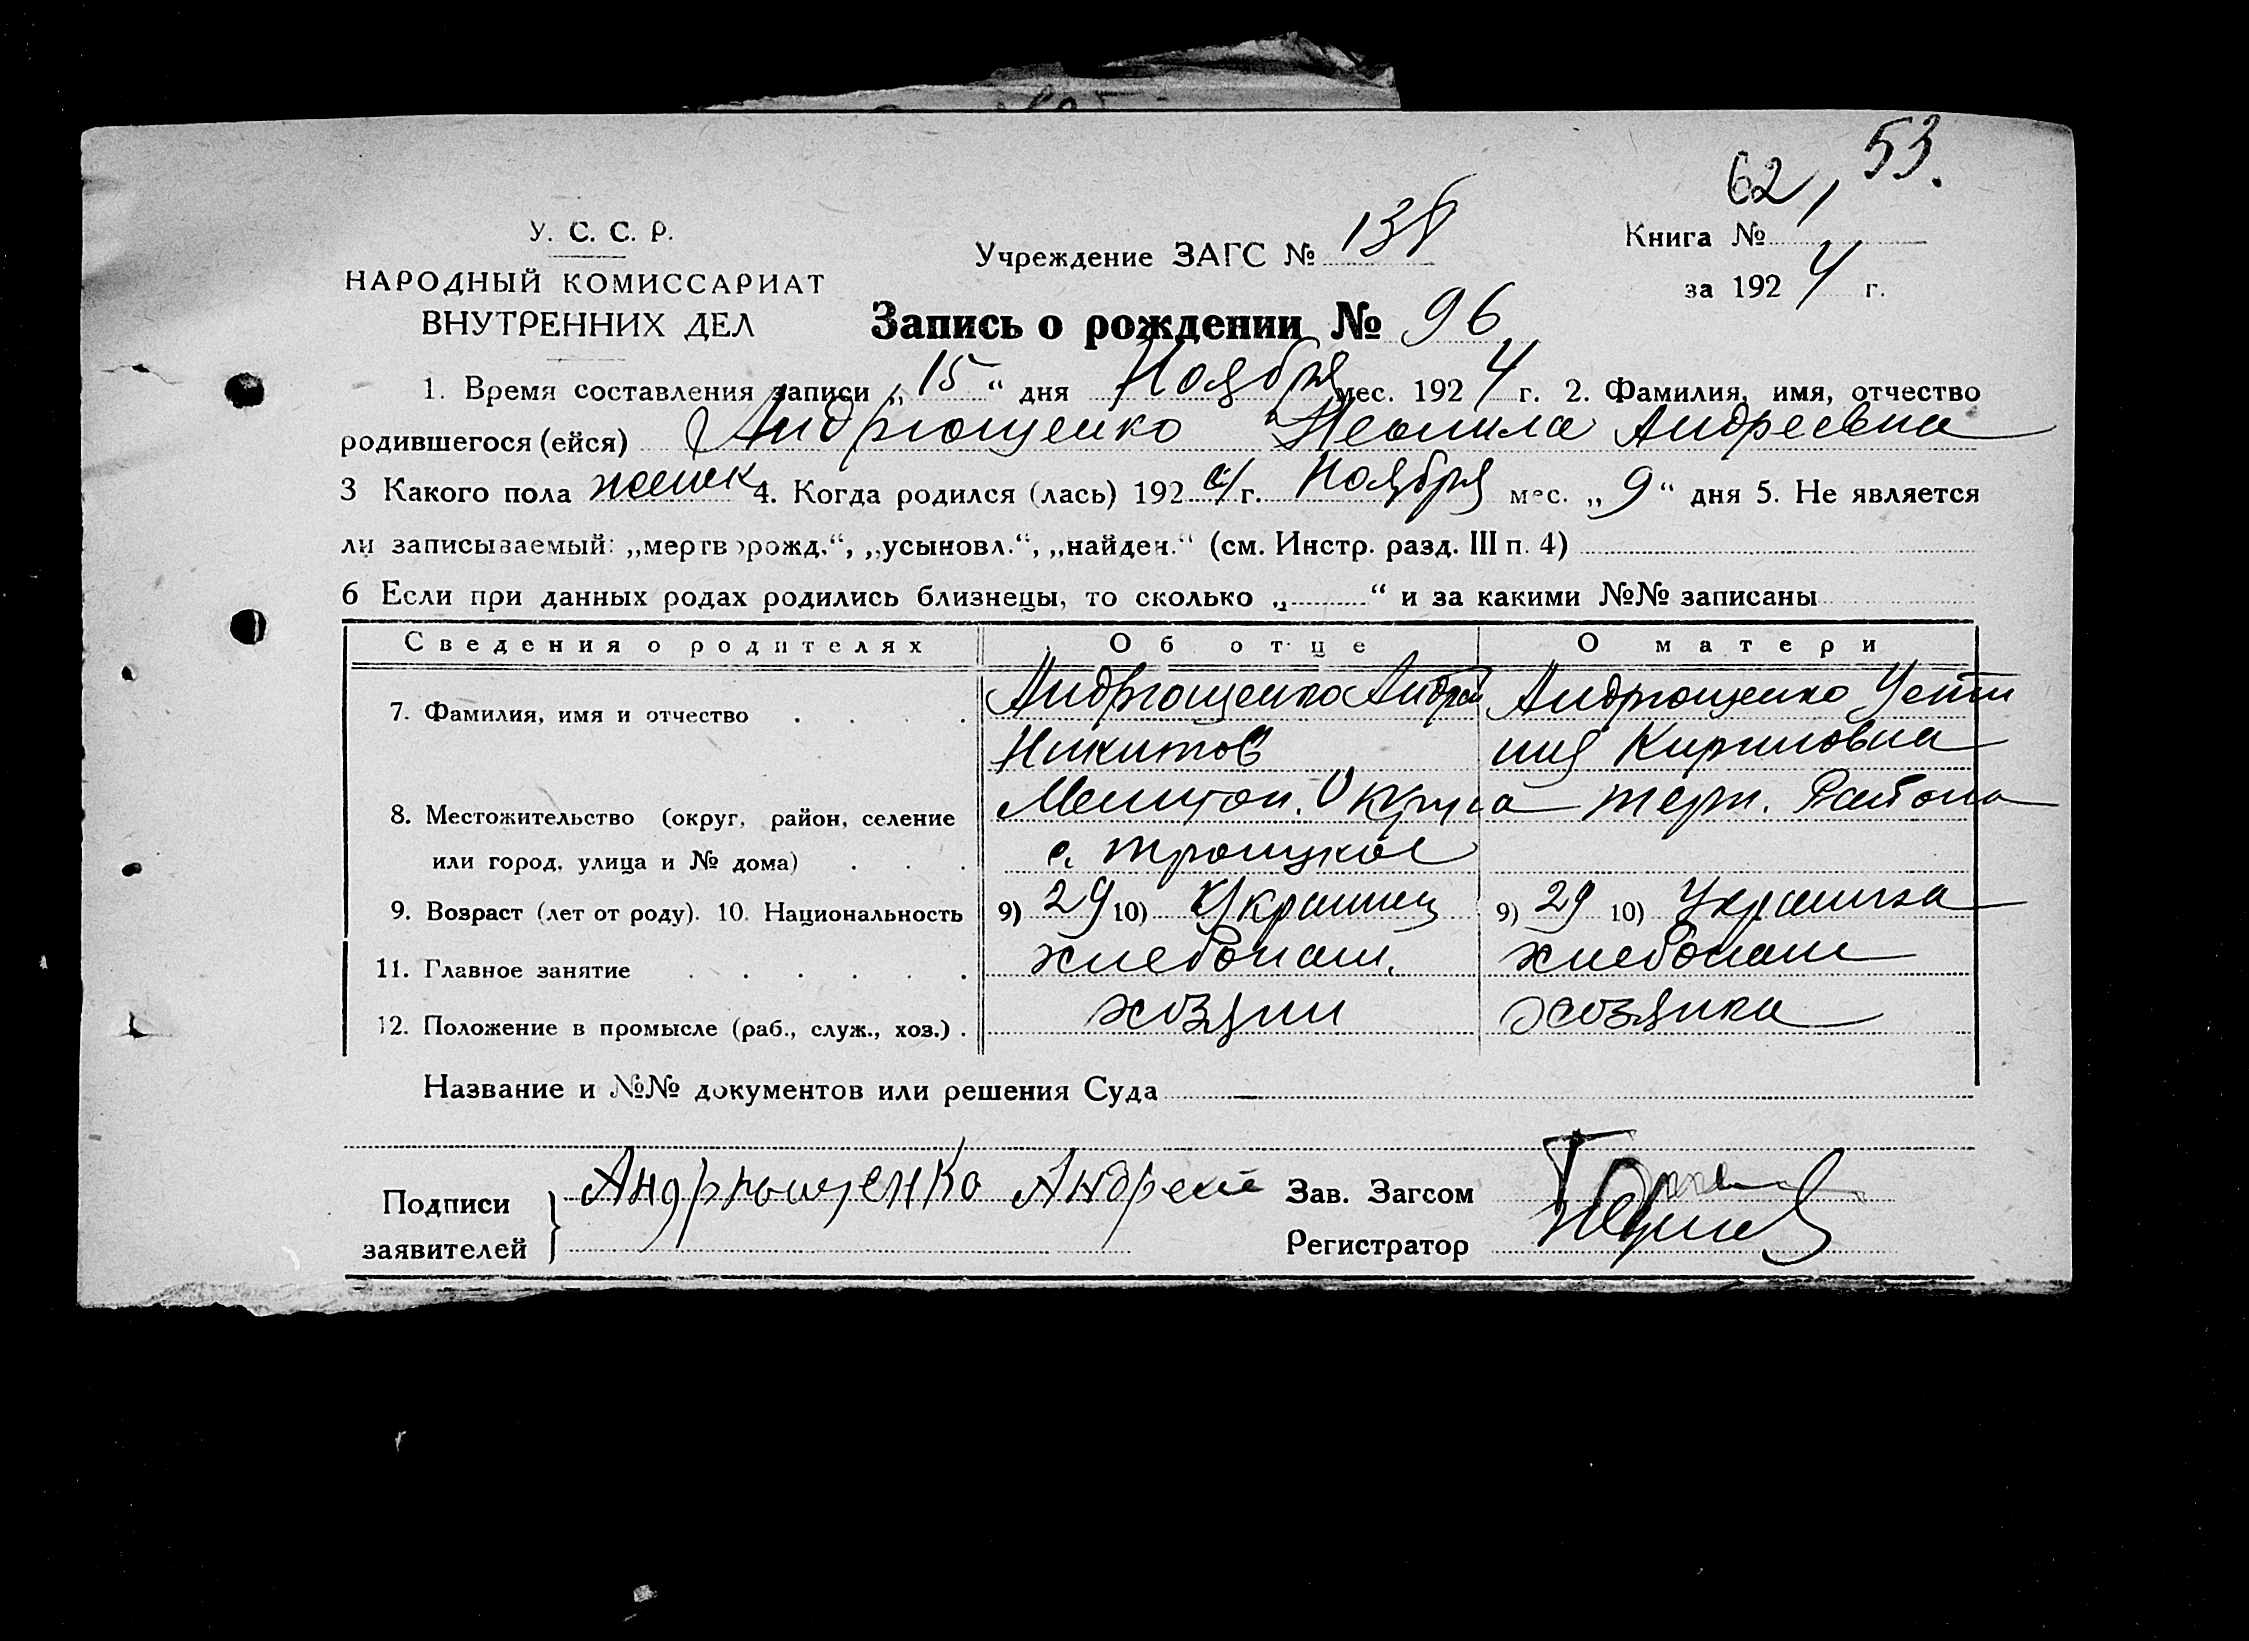 62, 53.
У. С. С. Р.
НАРОДНЫЙ КОМИССАРИАТ
ВНУТРЕННИХ ДЕЛ
Учреждение ЗАГС № 138
Книга №
за 1924 г.
Запись о рождении № 96
1. Время составления записи „15“ дня Ноября мес. 1924 г. 2. Фамилия, имя, отчество
родившегося (ейся) Андрющенко Неонила Андреевна
3 Какого пола женск 4. Когда родился (лась) 1924 г. Ноября мес. „9“ дня 5. Не является
ли записываемый: „мертворожд.“, „усыновл.“, „найден.“ (см. Инстр. разд. III п. 4)
6 Если при данных родах родились близнецы, то сколько „ “ и за какими №№ записаны
Сведения о родителях Об отце О матери
7. Фамилия, имя и отчество Андрющенко Андрей Андрющенко Усти
Никитов ния Кириловна
8. Местожительство (округ, район, селение Мелитоп. Округа терп. Района
или город, улица и № дома) с. троицкое
9. Возраст (лет от роду). 10. Национальность 9) 29 10) Украинец 9) 29 10) Украинка
11. Главное занятие хлебопаш. хлебопаш
12. Положение в промысле (раб., служ., хоз.) хозяин хозяйка
Название и №№ документов или решения Суда
Подписи Андрющенко Андрей Зав. Загсом
заявителей Регистратор